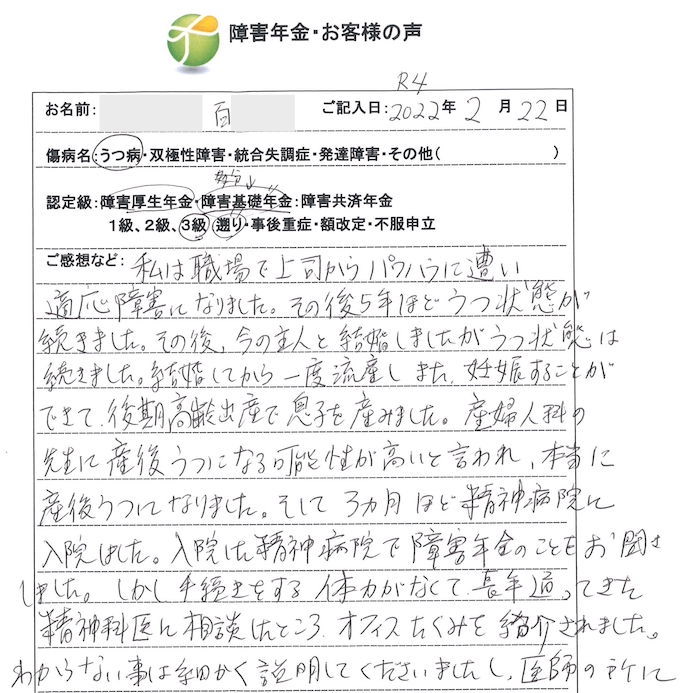 障害年金・お客様の声
R4
お名前: 百 ご記入日: 2022年 2月 22日
傷病名: うつ病・双極性障害・統合失調症・発達障害・その他( )
認定級: 障害厚生年金・障害基礎年金: 障害共済年金
1級、2級、3級 遡り・事後重症・額改定・不服申立
ご感想など: 私は職場で上司からパワハラに遭い
適応障害になりました。その後5年ほどうつ状態が
続きました。その後、今の主人と結婚しましたがうつ状態は
続きました。結婚してから一度流産しまた、妊娠することが
できて、後期高齢出産で息子を産みました。産婦人科の
先生に産後うつになる可能性が高いと言われ、本当に
産後うつになりました。そして3カ月ほど精神病院に
入院しました。入院した精神病院で障害年金のことをお聞き
しました。しかし手続きをする体力がなくて、長年通ってきた
精神科医に相談したところ、オフィスたくみを紹介されました。
わからない事は細かく説明してくださいましたし、医師の所に